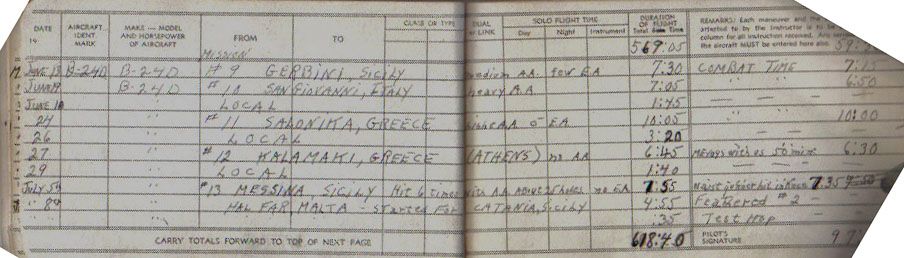 DATE 19 AIRCRAFT IDENT MARK MAKE — MODEL AND HORSEPOWER OF AIRCRAFT FROM TO CLASS OR TYPE DUAL or LINK SOLO FLIGHT TIME Day Night Instrument DURATION OF FLIGHT Total Time REMARKS: Each maneuver and the
attested to by the instructor
column for all instruction received. Any
the aircraft MUST be entered here also.
Mission 569:05
JUNE 18 B-24D B-24D #9 GERBINI, SICILY medium A.A. few E.A. 7:30 COMBAT TIME 7:15
JUNE 19 B-24D #10 SAN GIOVANNI, ITALY heavy A.A 7:05 — 6:50
JUNE " LOCAL 1:45 — —
24 " #11 SALONIKA, GREECE A.A. E.A. 10:05 — 10:00
26 " LOCAL 3:20 — —
27 " #12 KALAMAKI, GREECE (ATHENS) no A.A 6:45 with us 50 mins 6:30
29 " LOCAL 1:40 —
JULY 5th " #13 MESSINA, SICILY Hit 6 times with A.A. about holes no E.A. 7:55 7:35
" 8th " HAL FAR, MALTA - started for CATANIA, Sicily 4:55 Feathered #2 —
" :35 Test Hop —
CARRY TOTALS FORWARD TO TOP OF NEXT PAGE 618:40 PILOT'S SIGNATURE